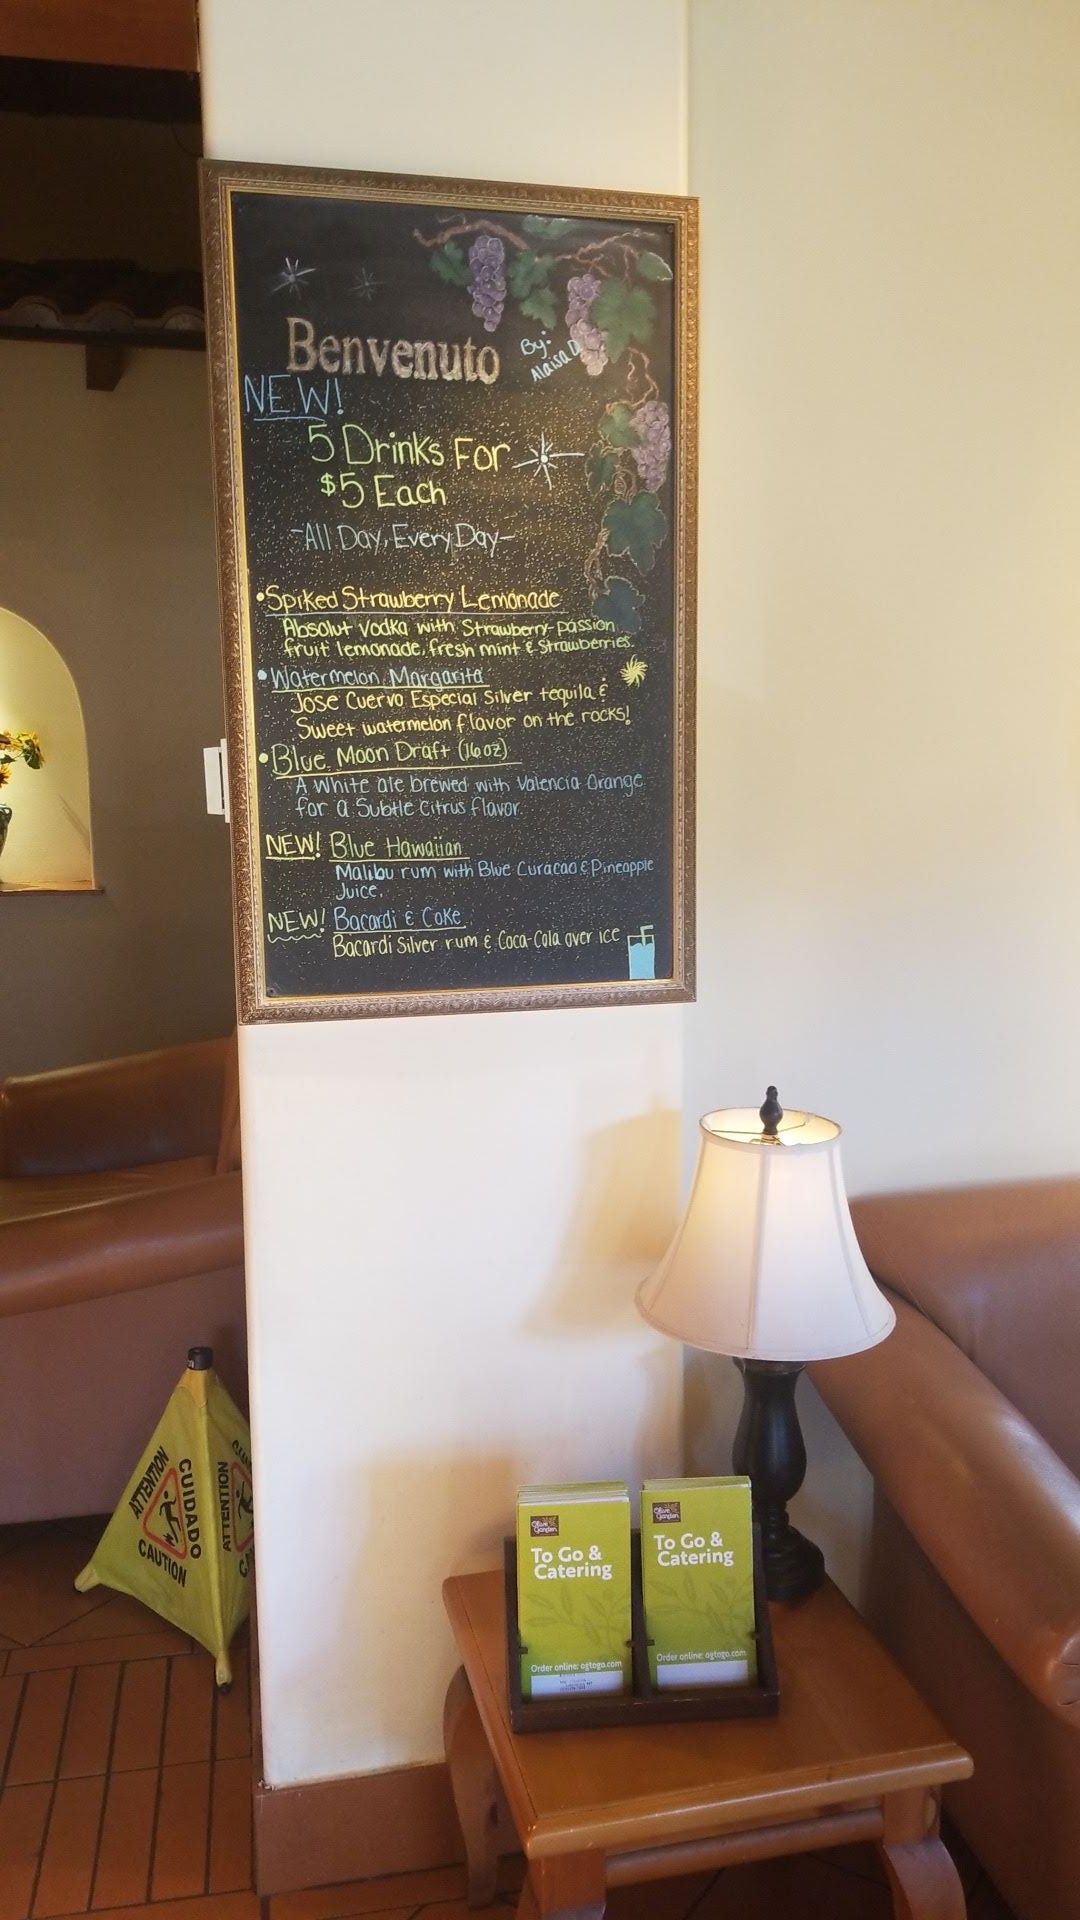 Benvenuto
By:
Alaisa D.
NEW!
5 Drinks For
$5 Each
-All Day, Every Day-
•Spiked Strawberry Lemonade
Absolut Vodka with Strawberry-passion
fruit lemonade, fresh mint & Strawberries.
•Watermelon Margarita
Jose Cuervo Especial Silver tequila &
Sweet watermelon flavor on the rocks!
•Blue Moon Draft (16oz)
A White ale brewed with Valencia Orange
for a Subtle Citrus flavor.
NEW! Blue Hawaiian
Malibu rum with Blue Curacao & Pineapple
Juice.
NEW! Bacardi & Coke
Bacardi Silver rum & Coca-Cola over ice
ATTENTION
CUIDADO
CAUTION
ATTENTION
Olive
Garden
To Go &
Catering
Order online: ogtogo.com
Olive
Garden
To Go &
Catering
Order online: ogtogo.com